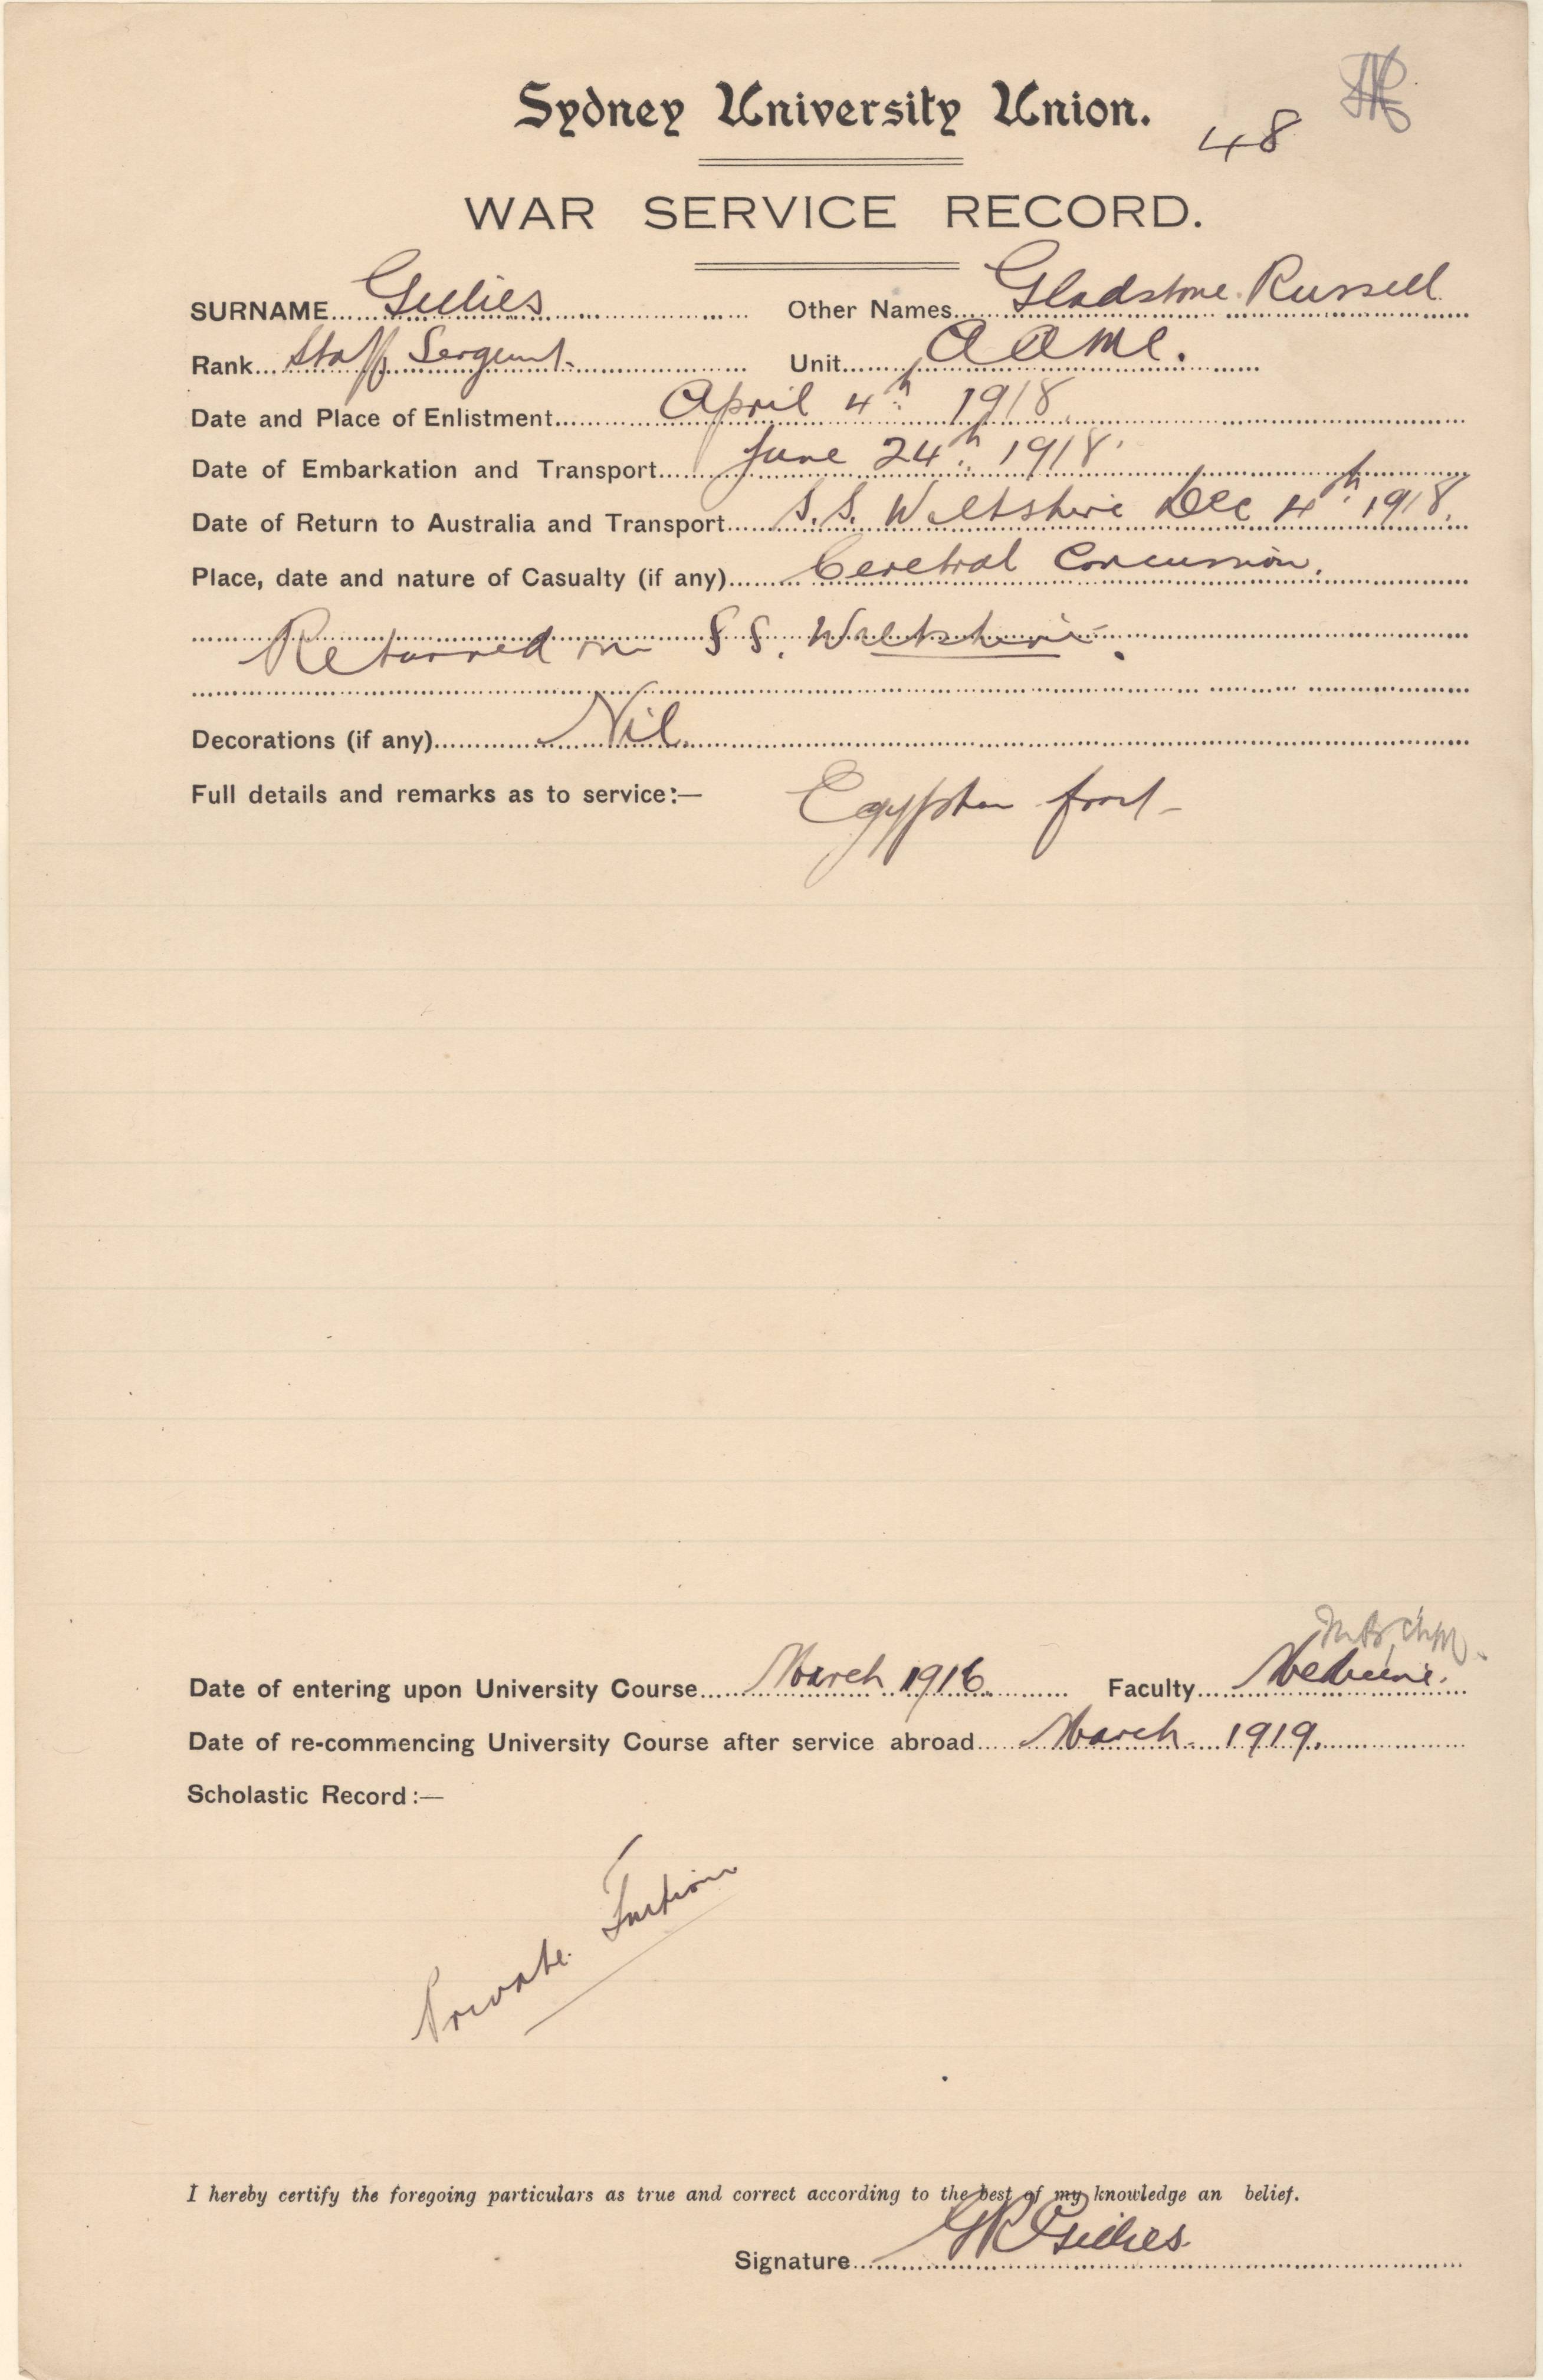 Sydney University Union.
48
WAR SERVICE RECORD.
SURNAME Gillies Other Names Gladstone Russell
Rank Staff Sergeant. Unit A A M C.
Date and Place of Enlistment April 4th 1918.
Date of Embarkation and Transport June 24th 1918.
Date of Return to Australia and Transport S.S. Wiltshire Dec 4th 1918.
Place, date and nature of Casualty (if any) Cerebral Concussion.
Returned on SS. Wiltshire.
Decorations (if any) Nil.
Full details and remarks as to service:— Egyptian front-
M.B, Ch.M.
Date of entering upon University Course March 1916. Faculty Medicine.
Date of re-commencing University Course after service abroad March 1919.
Scholastic Record:—
Private Tuition
I hereby certify the foregoing particulars as true and correct according to the best of my knowledge an belief.
Signature GRGillies